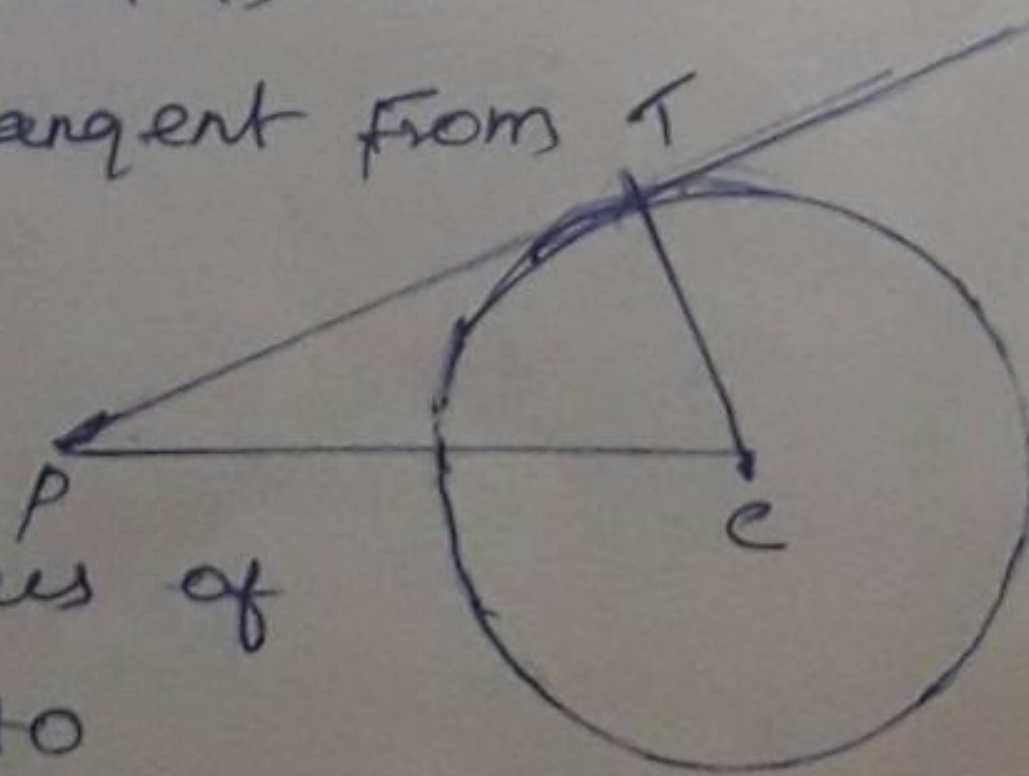 tangent from T
P
C
of
to